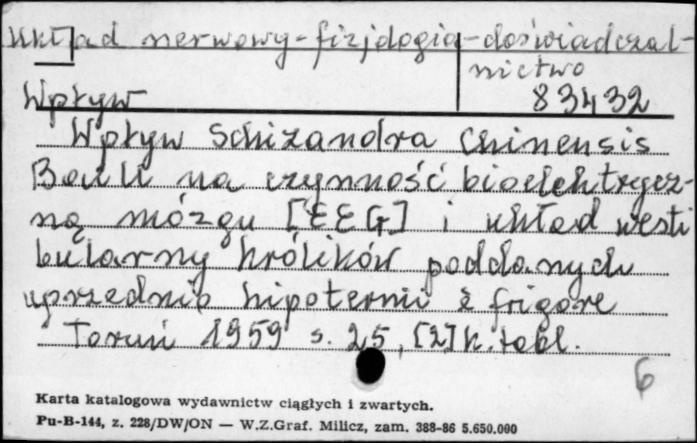 Układ nerwowy-fizjologia-doświadczal-
nictwo
Wpływ 83432
Wpływ Schizandra Chinensis
Baill na czynność bioelektrycz-
ną mózgu [EEG] i układ westi
bularny królików poddanych
uprzednio hipotermii è frigore
Toruń 1959 s. 25, [2] k. tabl.
6
Karta katalogowa wydawnictw ciągłych i zwartych.
Pu-B-144, z. 228/DW/ON — W.Z.Graf. Milicz, zam. 388-86 5.650.000